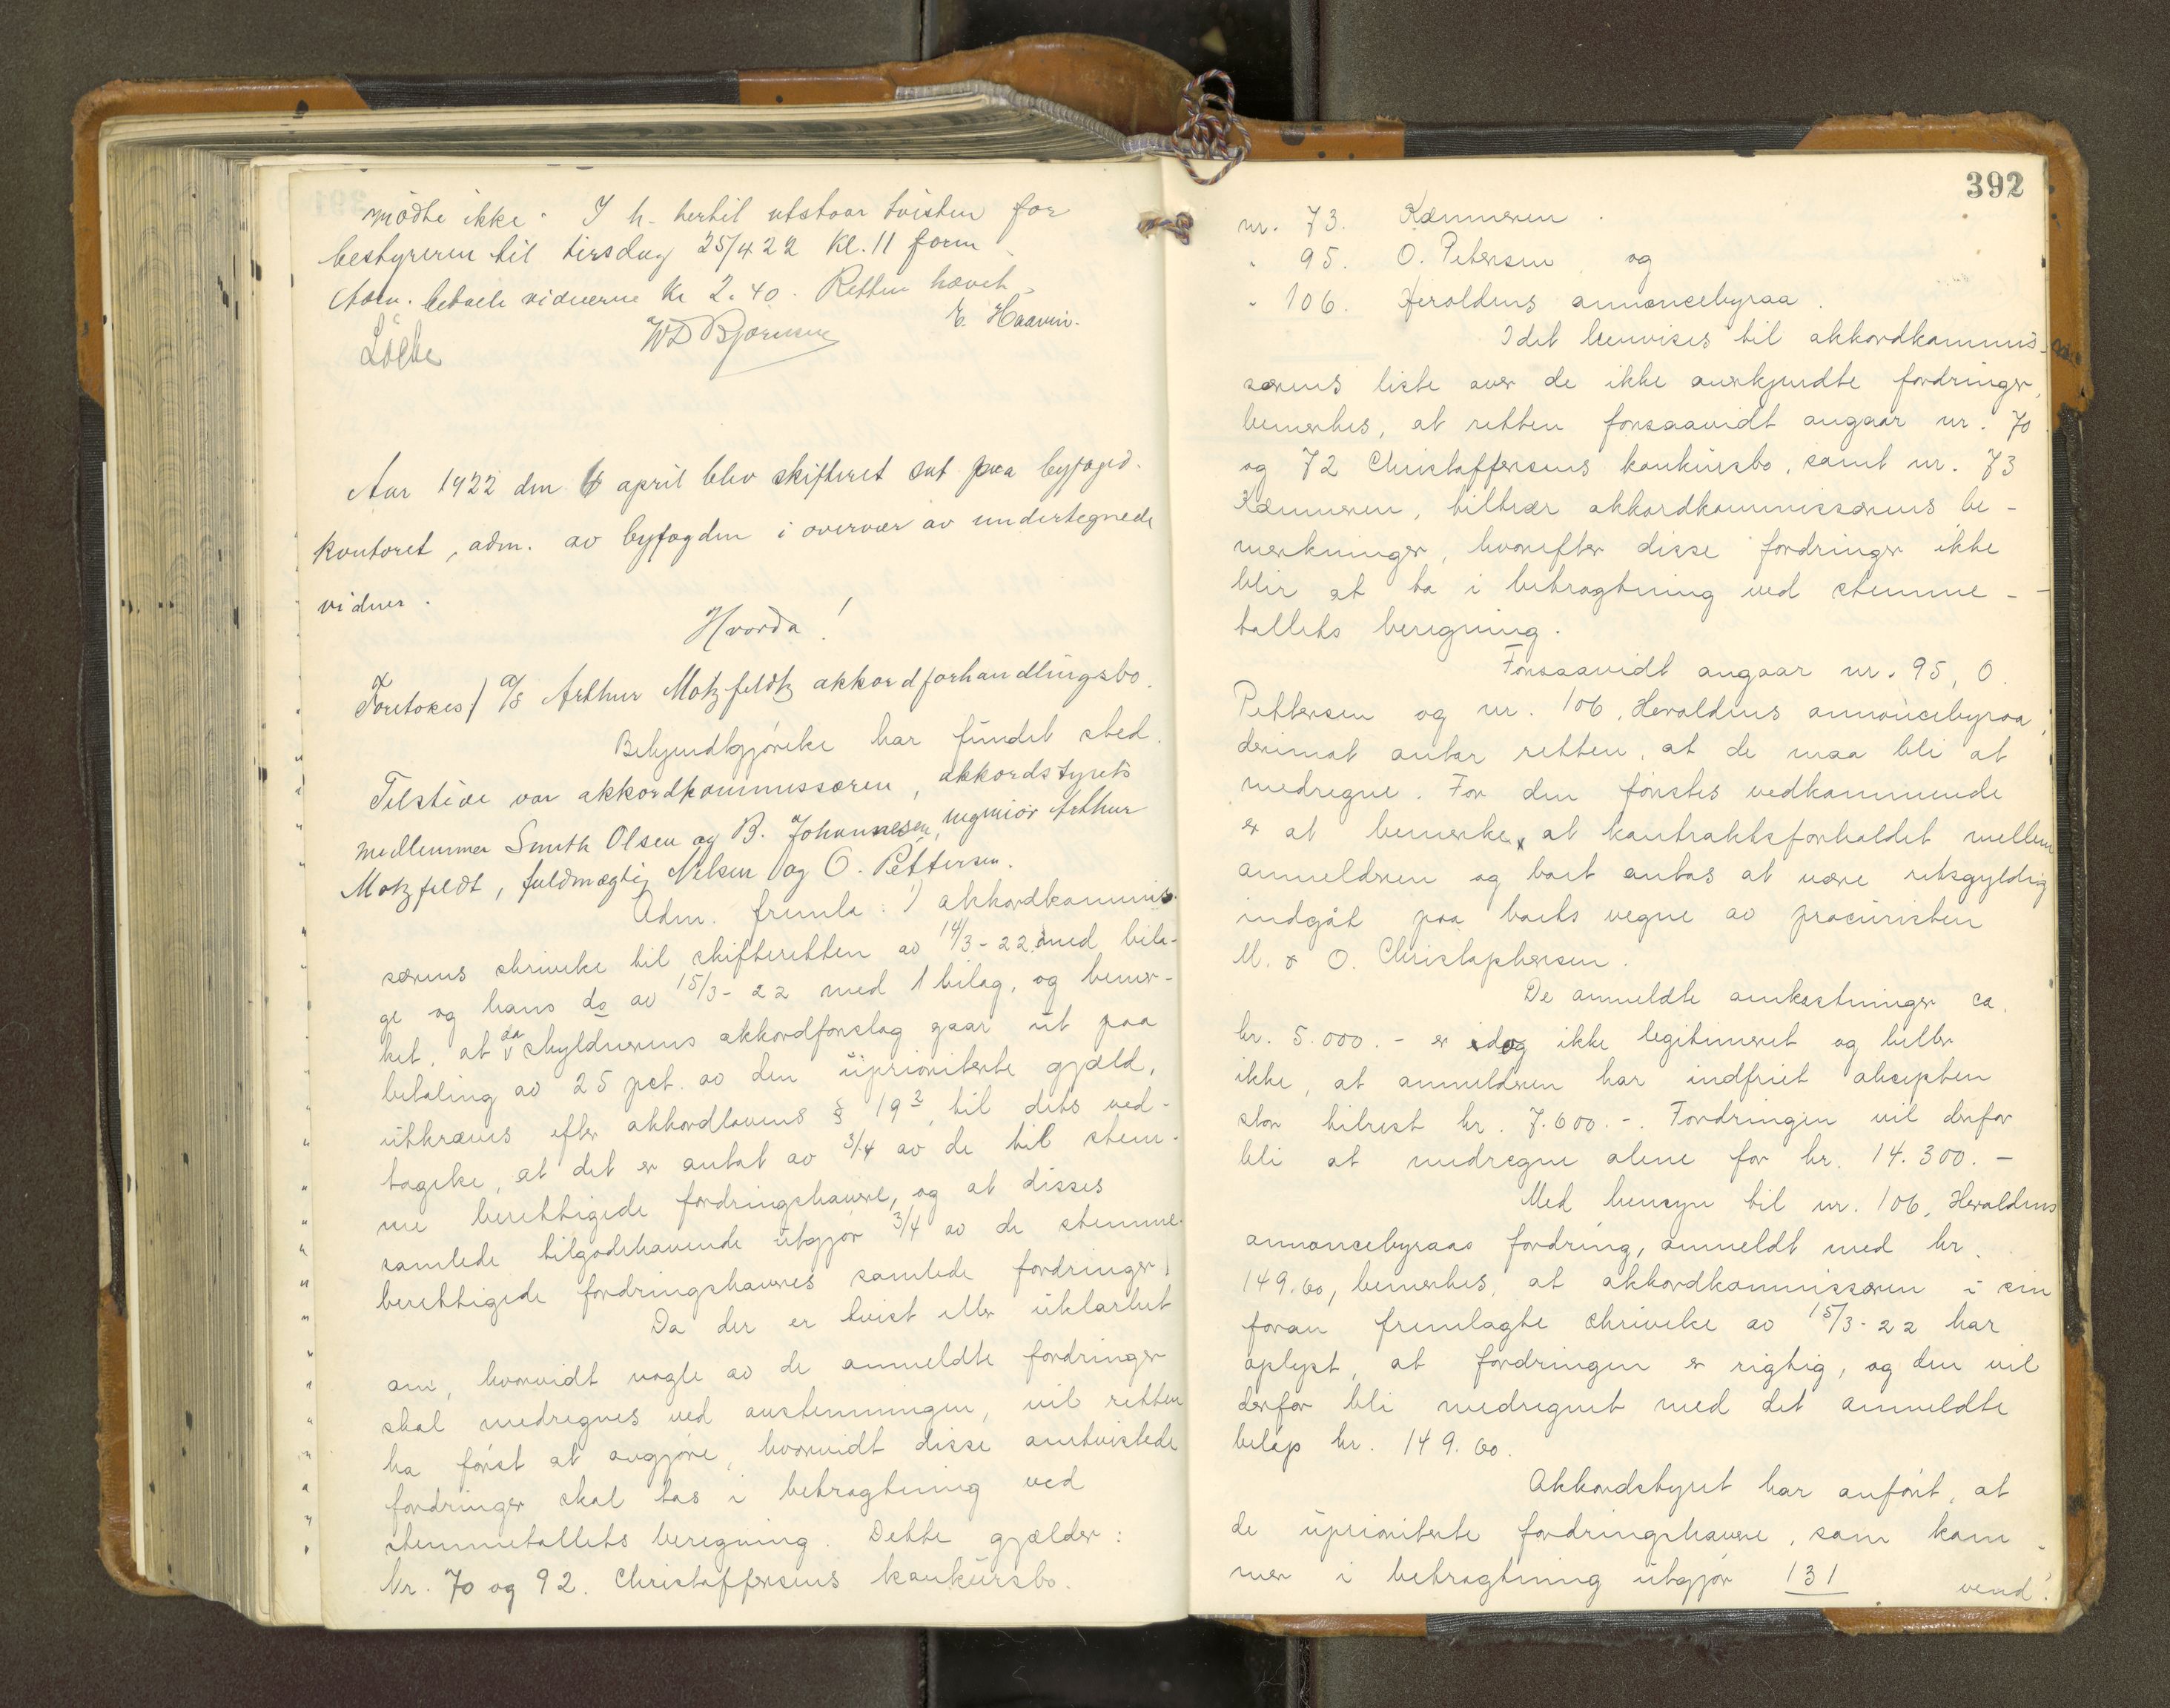 mödte ikke. I h. hertil utstaar tvisten for
bestyreren til tirsdag 25/4 22 kl. 11 form.
Adm. betaele vidnerne Kr 2.40. Retten hævet.
E. Haavin.
WD Bjørnsen
Aar 1922 den 6 april blev skifteret sat paa byfogd.
kontoret, adm. av byfogden i overvær av undertegnede
vidner.
Hvorda!
Foretoges:/ A/S Arthur Motzfeldts akkordforhandlingsbo.
Bekjendtgjørelse har fundet sted.
Tilstede var akkordkommissæren, akkordstyrets
medlemmer Smith Olsen og B. Johannesen, ingeniör Arthur
Motzfeldt, fuldmægtig Nilsen og O. Pettersen.
Adm. fremla: 1) akkordkommis-
særens skrivelse til skifteretten av 14/3-22 med bila-
ge og hans do av 15/3-22 med 1 bilag, og bemer-
ket, at da skyldnerens akkordforslag gaar ut paa
betaling av 25 pct. av den uprioriterte gjæld,
utkræves efter akkordlovens § 19² til dets ved-
tagelse, at det er antat av 3/4 av de til stem-
me berettigede fordringshavere, og at disses
samlede tilgodehavende utgjør 3/4 av de stemme-
berettigede fordringshaveres samlede fordringer.
Da der er tvist eller uklarhet
om, hvorvidt nogle av de anmeldte fordringer
skal medregnes ved avstemningen, vil retten
ha først at avgjøre, hvorvidt disse omtvistede
fordringer skal tas i betragtning ved
stemmetallets beregning. Dette gjælder:
Nr. 70 og 92. Christoffersens konkursbo.
392
nr. 73. Kæmneren.
" 95. O. Petersen og
" 106. Heroldens annoncebyraa.
Idet henvises til akkordkommis-
særens liste over de ikke anerkjendte fordringer,
bemerkes, at retten forsaavidt angaar nr. 70
og 72 Christoffersens konkursbo, samt nr. 73
Kæmneren, tiltrær akkordkommissærens be-
merkninger, hvorefter disse fordringer ikke
blir at ta i betragtning ved stemme-
tallets beregning.
Forsaavidt angaar nr. 95, O.
Pettersen og nr. 106, Heroldens annoncebyraa,
derimot antar retten, at de maa bli at
medregne. For den førstes vedkommende
er at bemerke, at kontraktsforholdet mellem
anmelderen og boet antas at være retsgyldig
indgåt paa boets vegne av procuristen
M. & O. Christophersen.
De anmeldte omkostninger ca.
kr. 5.000.- er dog ikke legitimeret og heller
ikke, at anmelderen har indfriet aksepten
stor tilrest kr. 7.600.-. Fordringen vil derfor
bli at medregne alene for kr. 14.300.-
Med hensyn til nr. 106, Heroldens
annoncebyraas fordring, anmeldt med kr.
149.60, bemerkes, at akkordkommissæren i sin
foran fremlagte skrivelse av 15/3-22 har
oplyst, at fordringen er rigtig, og den vil
derfor bli medregnet med det anmeldte
beløp kr. 149.60.
Akkordstyret har anført, at
de uprioriterte fordringshavere, som kom-
mer i betragtning utgjør 131
vend!